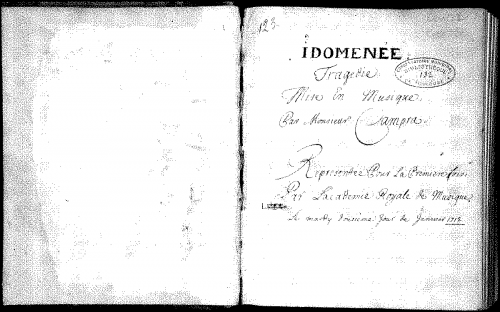 123.
IDOMENÉE
Tragedie
Mise En Musique
Par Monsieur Campra.
BIBLIOTHEQUE
132
Representée Pour La Premiere fois
Par Lacademie Royale de Musique
Le mardy douzieme Jour de Janvier 1712